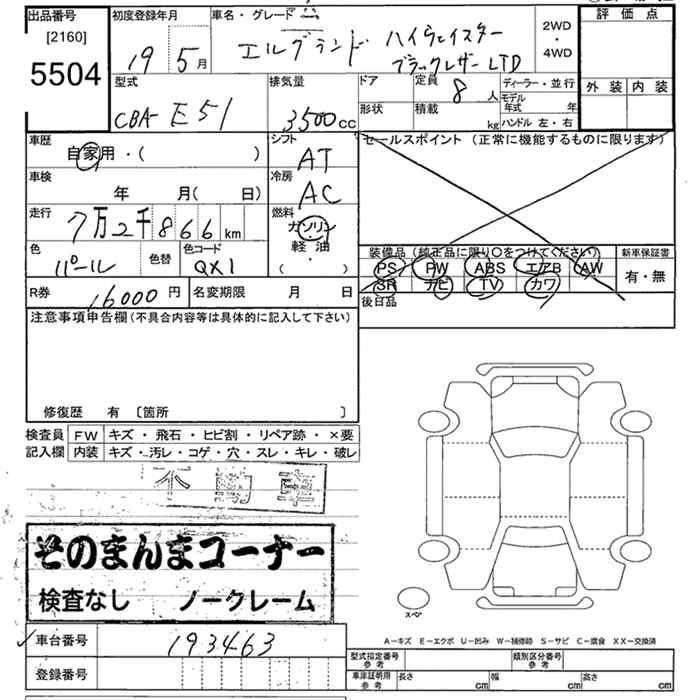 出品番号
[2160]
5504
初度登録年月
19 5月
車名・グレード
エルグランド ハイウェイスター
ブラックレザーLTD
2WD
・
4WD
評価点
外装 内装
型式
CBA-E51
排気量
3500cc
ドア
形状
定員
8人
積載
kg
ディーラー・並行
モデル年式 年
ハンドル 左・右
車歴
自家用・( )
シフト
AT
セールスポイント(正常に機能するものに限ります)
車検
年 月( 日)
冷房
AC
走行
7万2千866km
燃料
ガソリン
・
軽油
( )
色
パール
色替
色コード
QX1
装備品(純正品に限り○をつけてください)
PS PW ABS エアB AW
SR ナビ TV カワ
新車保証書
有・無
R券
16000円
名変期限 月 日
後日品
注意事項申告欄(不具合内容等は具体的に記入して下さい)
修復歴 有 〔箇所 〕
検査員
記入欄
FW キズ・飛石・ヒビ割・リペア跡・×要
内装 キズ・汚レ・コゲ・穴・スレ・キレ・破レ
不動車
そのまんまコーナー
検査なし ノークレーム
スペア
A-キズ E-エクボ U-凹み W-補修跡 S-サビ C-腐食 XX-交換済
車台番号
193463
登録番号
型式指定番号
参考
類別区分番号
参考
車庫証明用
参考
長さ cm
幅 cm
高さ cm